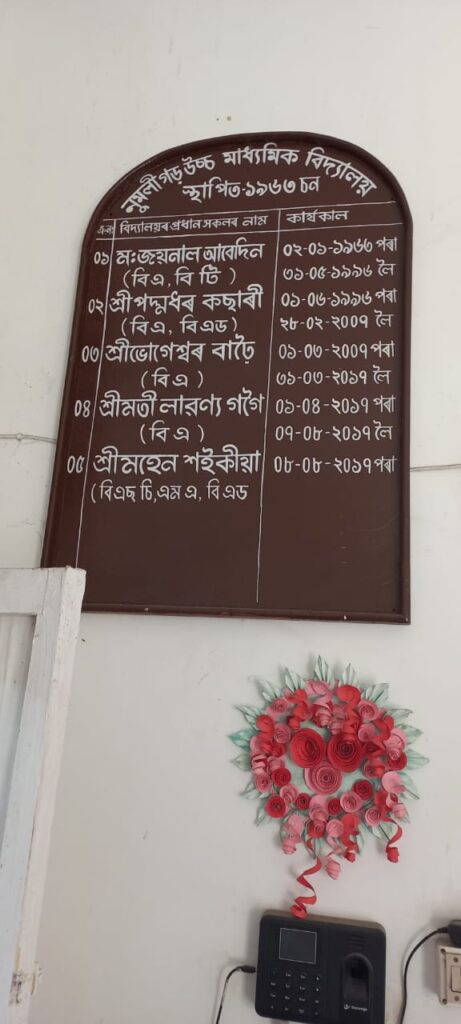 নুমলীগড় উচ্চ মাধ্যমিক বিদ্যালয়
স্থাপিত-১৯৬৩ চন
ক্ৰনং বিদ্যালয়ৰ প্ৰধান সকলৰ নাম কাৰ্যকাল
০১ মঃজয়নাল আবেদিন ০২-০১-১৯৬৩ পৰা
(বিএ, বি টি) ৩১-০৫-১৯৯৬ লৈ
০২ শ্ৰীপদ্মধৰ কছাৰী ০১-০৬-১৯৯৬ পৰা
(বিএ, বিএড) ২৮-০২-২০০৭ লৈ
০৩ শ্ৰীভোগেশ্বৰ বাঢ়ৈ ০১-০৩-২০০৭ পৰা
(বি এ) ৩১-০৩-২০১৭ লৈ
০৪ শ্ৰীমতী লাৱণ্য গগৈ ০১-০৪-২০১৭ পৰা
(বি এ) ০৭-০৮-২০১৭ লৈ
০৫ শ্ৰীমহেন শইকীয়া ০৮-০৮-২০১৭ পৰা
(বিএছ চি,এম এ, বি এড